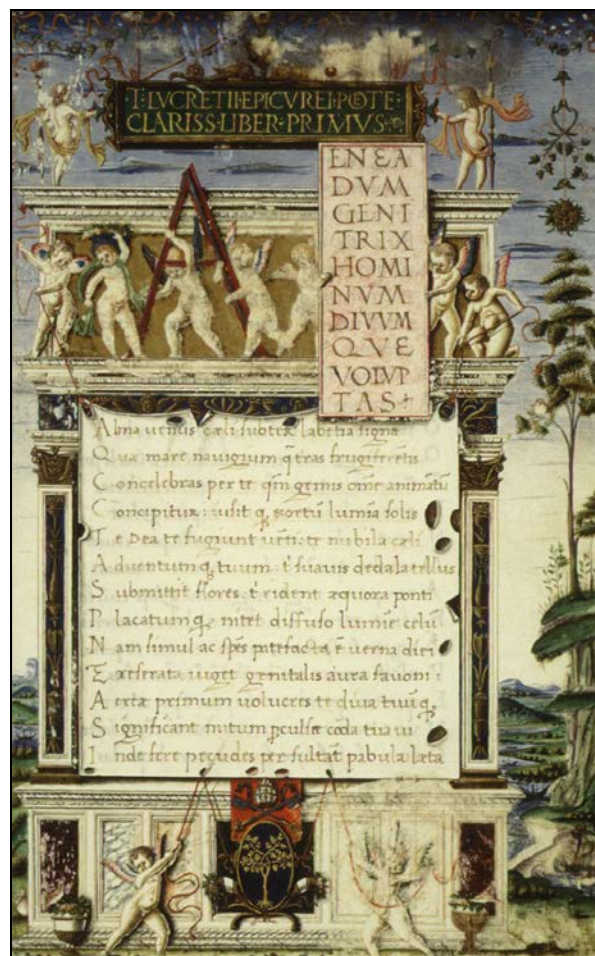 ·T·LVCRETII·EPICVREI·POETE·
CLARISS·LIBER·PRIMVS·
A
ENEA
DVM
GENI
TRIX
HOMI
NVM
DIVVM
QVE
VOLVP
TAS
Alma uenus cæli subter labētia signa
Quæ mare nauigium q̄ t̄ras frugiferētis
Concelebras per te qm̄ genus om̄e animātū
Concipitur: uisit q̨ exortū lumīa solis
Te Dea te fugiunt uēti: te nubila cæli
Aduentum q̨ tuum: t' suauis dedala tellus
Submittit flores: t' rident æquora ponti
Placatum q̨ nitet diffuso lumīe celū
Nam simul ac spēs patefacta ē uerna diei
Et reserata uiget genitalis aura fauoni:
Aeriæ primum uolucres te diua tuū q̨
Significant initum ꝑculsæ corda tua ui
Inde feræ pecudes persultāt pabula læta